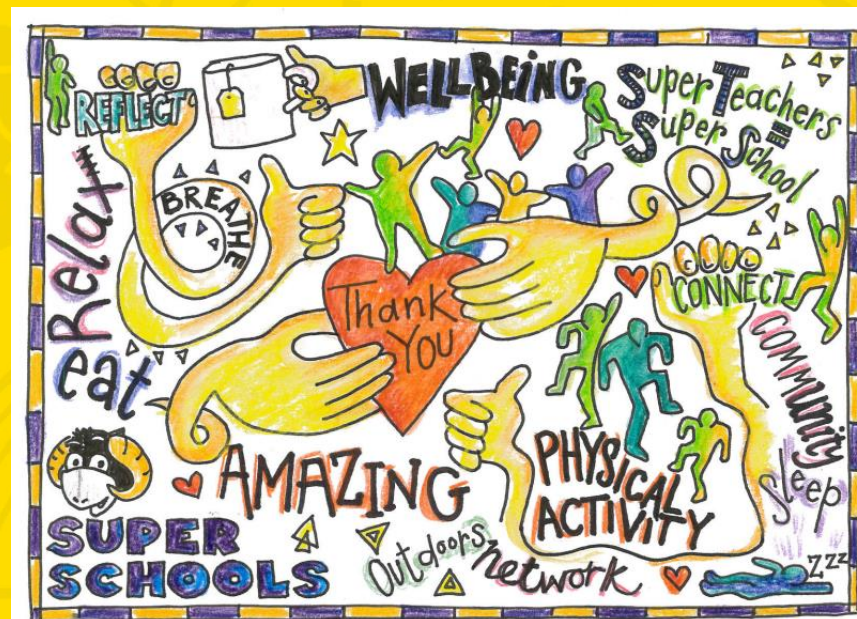 REFLECT
WELLBEING
Super Teachers
=
Super School
Relax
BREATHE
eat
Thank
YOU
CONNECT
COMMUNITY
Sleep
AMAZING
PHYSICAL
ACTIVITY
SUPER
SCHOOLS
Outdoors
network
ZZZ